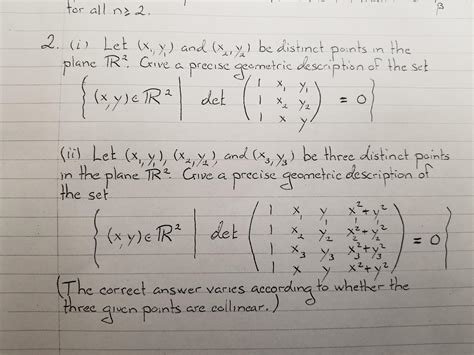 for all n ≥ 2.
2. (i) Let (x₁, y₁) and (x₂, y₂) be distinct points in the
plane ℝ². Give a precise geometric description of the set
{ (x, y) ∈ ℝ² | det ( 1 x₁ y₁
1 x₂ y₂
1 x y ) = 0 }
(ii) Let (x₁, y₁), (x₂, y₂), and (x₃, y₃) be three distinct points
in the plane ℝ². Give a precise geometric description of
the set
{ (x, y) ∈ ℝ² | det ( 1 x₁ y₁ x₁² + y₁²
1 x₂ y₂ x₂² + y₂²
1 x₃ y₃ x₃² + y₃²
1 x y x² + y² ) = 0 }
(The correct answer varies according to whether the
three given points are collinear.)